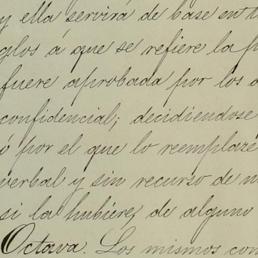 y ella servirá de base en t
glos á que se refiere la p
fuere aprobada por los a
confidencial; decidiendose
ó por el que lo reemplaze
verbal y sin recurso de n
si la hubiere, de alguno
Octava. Los mismos con